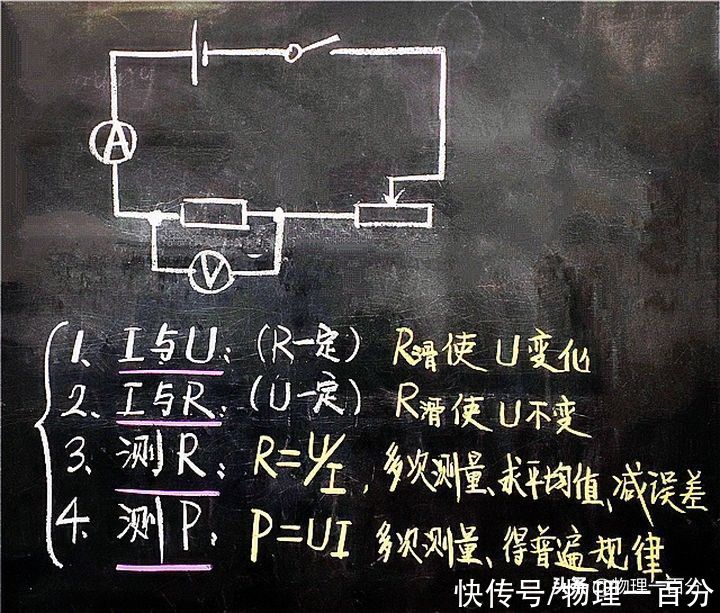 A
V
1、I与U：（R一定） R滑使U变化
2、I与R：（U一定） R滑使U不变
3、测R：R=U/I，多次测量、求平均值、减误差
4、测P：P=UI 多次测量、得普遍规律
头条 @物理一百分
快传号/物理一百分